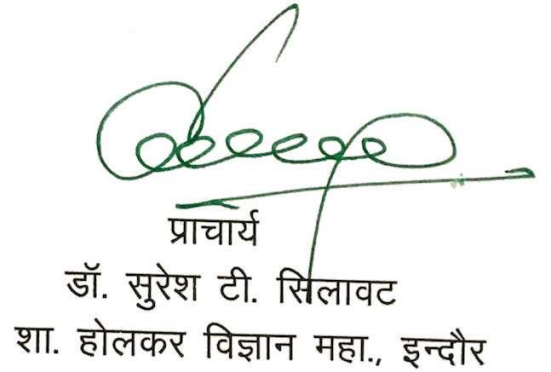 प्राचार्य
डॉ. सुरेश टी. सिलावट
शा. होलकर विज्ञान महा., इन्दौर